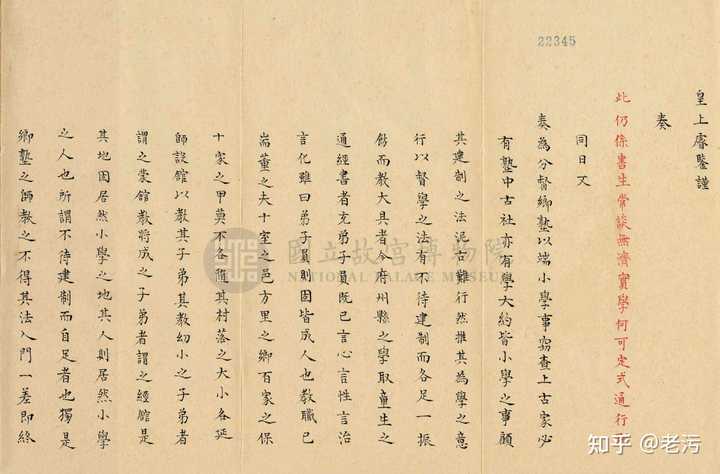 22345
皇上睿鑒謹
奏
此仍係書生常談無濟實學何可定式通行
同日又
奏為分督鄉塾以端小學事竊查上古家必
有塾中古社亦有學大約皆小學之事顧
其建制之法泥古難行然推其為學之意
行以督學之法有不待建制而各足一振
飭而教大具者今府州縣之學取童生之
通經書者充弟子員既已言心言性言治
言化雖曰弟子員則固皆成人也教職已
耑董之夫十室之邑方里之鄉百家之保
十家之甲莫不各隨其村落之大小各延
師設館以教其子弟其教幼小之子弟者
謂之蒙館教將成之子弟者謂之經館是
其地固居然小學之地其人則居然小學
之人也所謂不待建制而自足者也獨是
鄉塾之師教之不得其法入門一差即終
國立故宮博物院
NATIONAL PALACE MUSEUM
知乎 @老污